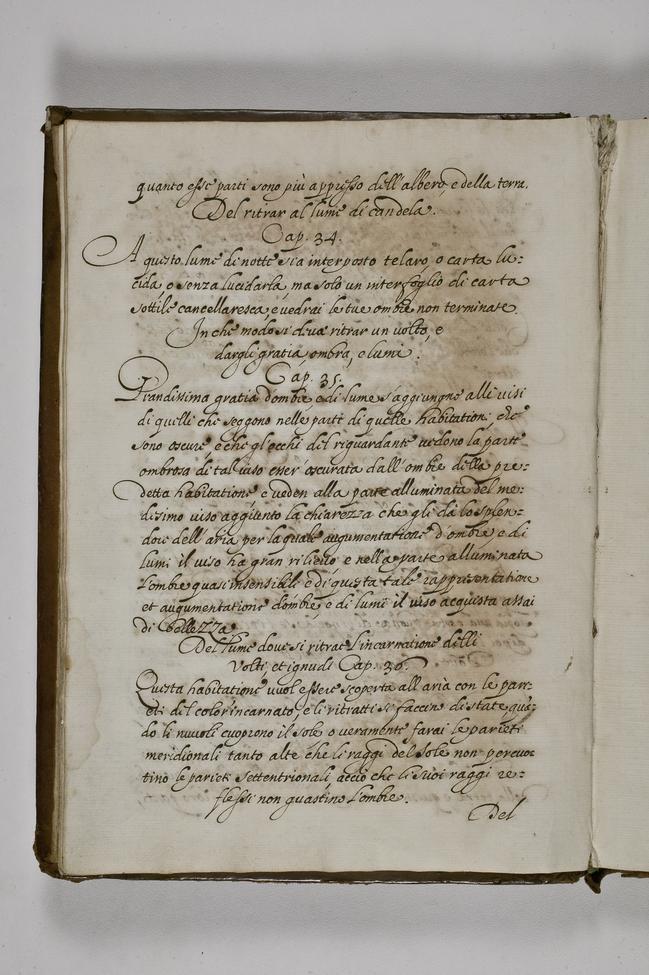 quanto esse parti sono più appresso dell'albero, e della terra.
Del ritrar al lume di candela.
Cap. 34.
A questo lume di notte sia interposto telaro, o carta lu=
cida, o senza lucidarla, ma solo un interfoglio di carta
sottile cancellaresca, e vedrai le tue ombre non terminate.
In che modo si deva ritrar un volto, e
dargli gratia, ombra, e lumi.
Cap. 35.
Grandissima gratia d'ombre, e di lume s'aggiungne alli visi
di quelli che seggono nelle parti di quelle habitationi, che
sono oscure, e che gl'occhi del riguardante vedono la parte
ombrosa di tal viso esser oscurata dall'ombre della pre=
detta habitatione e veden alla parte alluminata del me=
desimo viso aggiunto la chiarezza che gli dà lo splen=
dore dell'aria per la quale augumentatione d'ombre e di
lumi il viso ha gran rilievo e nella parte alluminata
l'ombre quasi insensibili e di questa tale rappresentatione
et augumentatione d'ombre, e di lumi il viso acquista assai
di bellezza.
Del lume dove si ritrae l'incarnatione delli
volti, et ignudi Cap. 36.
Questa habitatione vuol essere scoperta all'aria con le par=
eti del color incarnato, e li ritratti si faccino di state quã=
do li nuvoli cuoprono il sole o veramente farai le parieti
meridionali tanto alte che li raggi del sole non percuo=
tino le pariete settentrionali acciò che li suoi raggi re=
flessi non guastino l'ombre.
Del